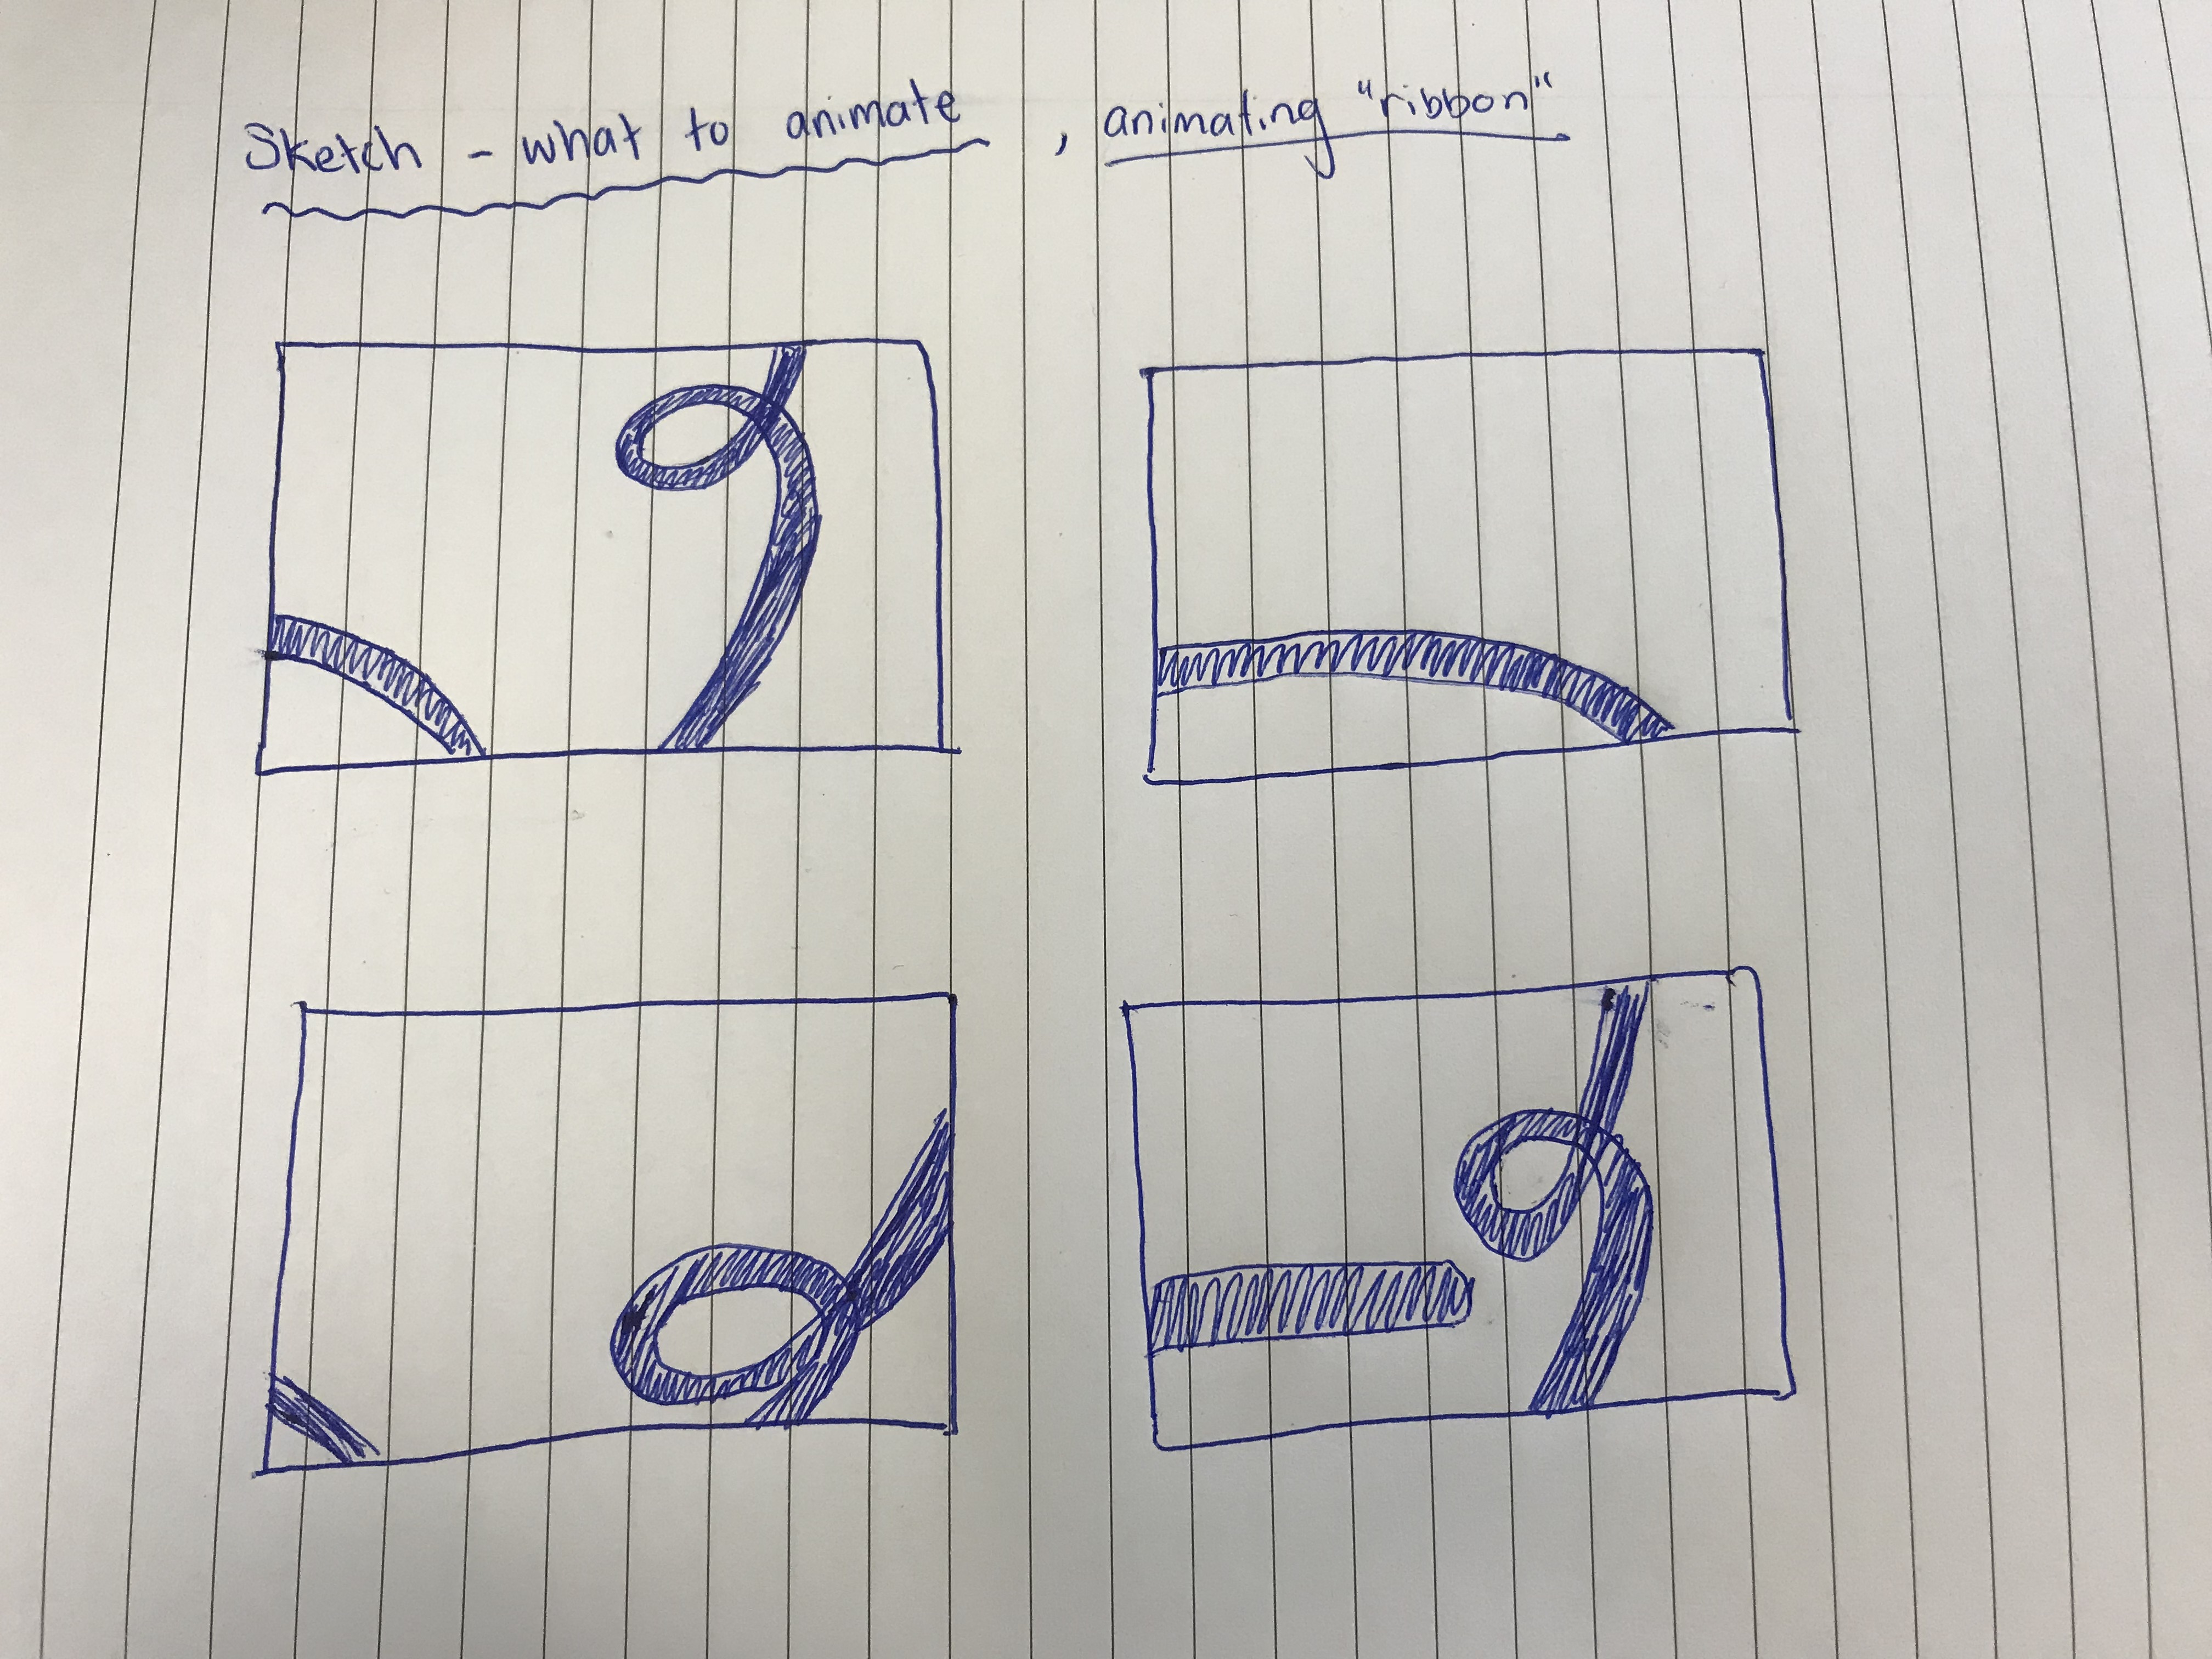 Sketch - what to animate , animating "ribbon"